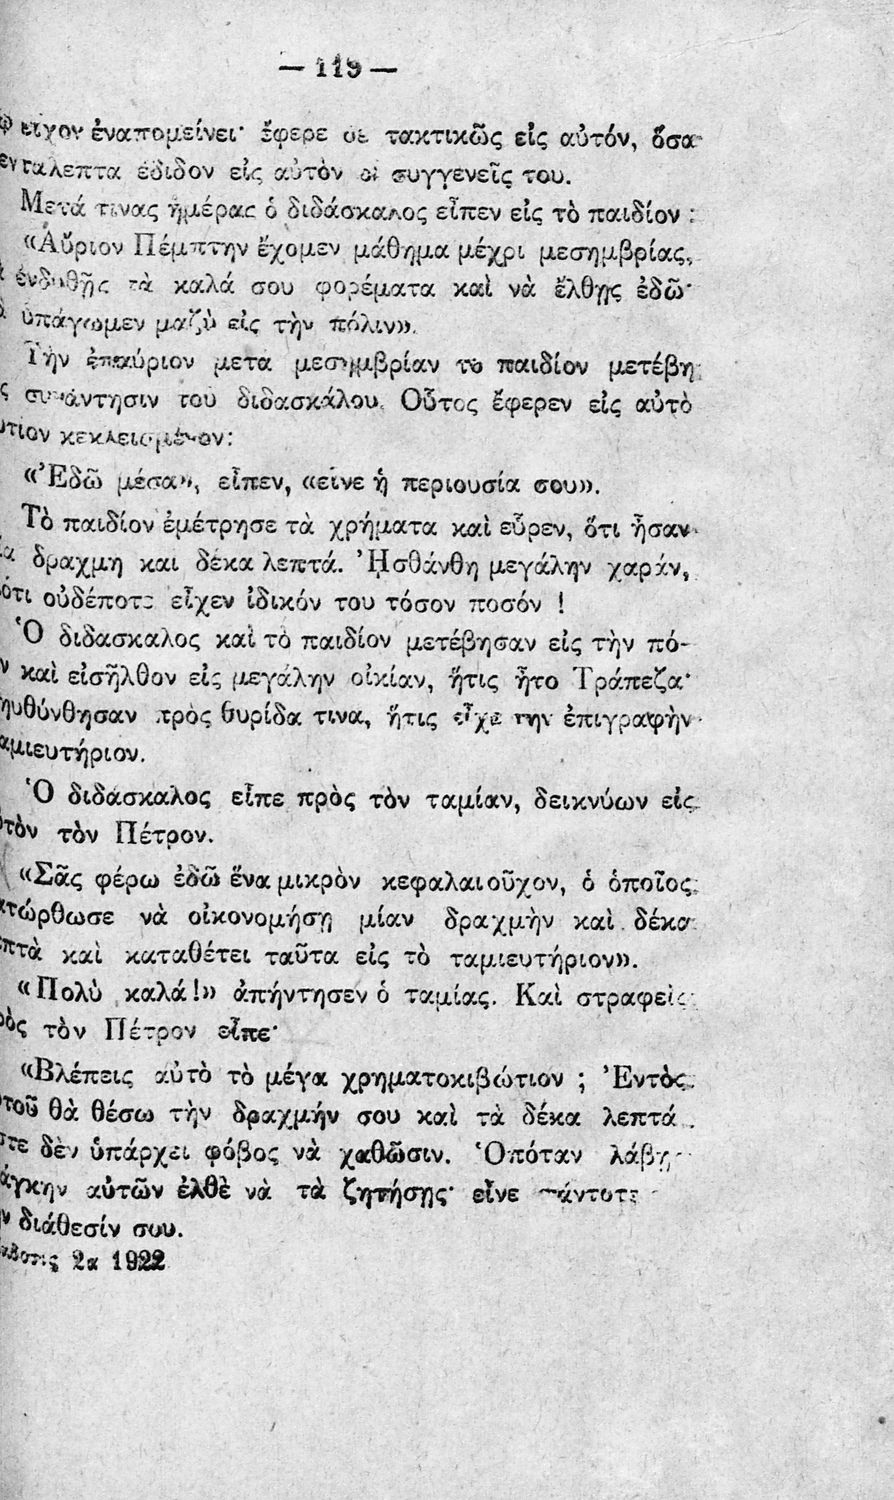 — 119 —
εἶχον ἐναπομείνει· ἔφερε δὲ τακτικῶς εἰς αὐτόν, ὅσα
λεπτα ἔδιδον εἰς αὐτὸν οἱ συγγενεῖς του.
Μετά τινας ἡμέρας ὁ διδάσκαλος εἶπεν εἰς τὸ παιδίον :
«Αὔριον Πέμπτην ἔχομεν μάθημα μέχρι μεσημβρίας,
ἐνδυθῇς τὰ καλά σου φορέματα καὶ νὰ ἔλθῃς ἐδῶ·
ὑπάγωμεν μαζὺ εἰς τὴν πόλιν».
Τὴν ἐπαύριον μετὰ μεσημβρίαν τὸ παιδίον μετέβη
ς συνάντησιν τοῦ διδασκάλου. Οὗτος ἔφερεν εἰς αὐτὸ
τίον κεκλεισμένον:
«Ἐδῶ μέσα», εἶπεν, «εἶνε ἡ περιουσία σου».
Τὸ παιδίον ἐμέτρησε τὰ χρήματα καὶ εὗρεν, ὅτι ἦσαν
α δραχμὴ καὶ δέκα λεπτά. Ἠσθάνθη μεγάλην χαράν,
ότι οὐδέποτε εἶχεν ἰδικόν του τόσον ποσόν !
Ὁ διδάσκαλος καὶ τὸ παιδίον μετέβησαν εἰς τὴν πό-
ν καὶ εἰσῆλθον εἰς μεγάλην οἰκίαν, ἥτις ἦτο Τράπεζα·
ηυθύνθησαν πρὸς θυρίδα τινα, ἥτις εἶχε τὴν ἐπιγραφὴν
αμιευτήριον.
Ὁ διδάσκαλος εἶπε πρὸς τὸν ταμίαν, δεικνύων εἰς
τὸν τὸν Πέτρον.
«Σᾶς φέρω ἐδῶ ἕνα μικρὸν κεφαλαιοῦχον, ὁ ὁποῖος
ατώρθωσε νὰ οἰκονομήσῃ μίαν δραχμὴν καὶ δέκα
πτὰ καὶ καταθέτει ταῦτα εἰς τὸ ταμιευτήριον».
«Πολὺ καλά!» ἀπήντησεν ὁ ταμίας. Καὶ στραφεὶς
ὸς τὸν Πέτρον εἶπε·
«Βλέπεις αὐτὸ τὸ μέγα χρηματοκιβώτιον ; Ἐντὸς
τοῦ θὰ θέσω τὴν δραχμήν σου καὶ τὰ δέκα λεπτά.
τε δὲν ὑπάρχει φόβος νὰ χαθῶσιν. Ὁπόταν λάβῃς
άγκην αὐτῶν ἐλθὲ νὰ τὰ ζητήσῃς· εἶνε πάντοτε
ν διάθεσίν σου.
κδοσις 2α 1922